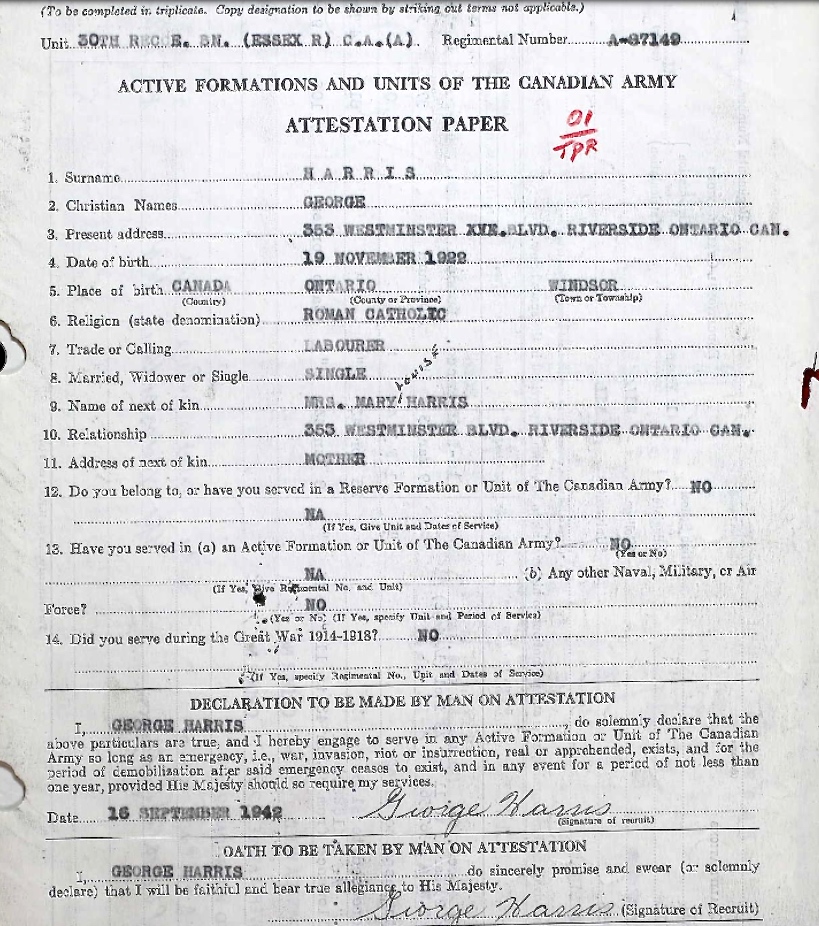 (To be completed in triplicate. Copy designation to be shown by striking out terms not applicable.)
Unit 30TH REC. E. BN. (ESSEX R) C.A.(A). Regimental Number A-87149
ACTIVE FORMATIONS AND UNITS OF THE CANADIAN ARMY
ATTESTATION PAPER
01
TPR
1. Surname HARRIS
2. Christian Names GEORGE
3. Present address 353 WESTMINSTER BLVD. RIVERSIDE ONTARIO CAN.
4. Date of birth 19 NOVEMBER 1922
5. Place of birth CANADA ONTARIO WINDSOR
(Country) (County or Province) (Town or Township)
6. Religion (state denomination) ROMAN CATHOLIC
7. Trade or Calling LABOURER
8. Married, Widower or Single SINGLE
LOUISE
9. Name of next of kin MRS. MARY HARRIS
10. Relationship 353 WESTMINSTER BLVD. RIVERSIDE ONTARIO CAN.
11. Address of next of kin MOTHER
12. Do you belong to, or have you served in a Reserve Formation or Unit of The Canadian Army? NO
NA
(If Yes, Give Unit and Dates of Service)
13. Have you served in (a) an Active Formation or Unit of The Canadian Army? NO
(Yes or No)
NA (b) Any other Naval, Military, or Air
(If Yes, Give Regimental No. and Unit)
Force? NO
(Yes or No) (If Yes, specify Unit and Period of Service)
14. Did you serve during the Great War 1914-1918? NO
(If Yes, specify Regimental No., Unit and Dates of Service)
DECLARATION TO BE MADE BY MAN ON ATTESTATION
I, GEORGE HARRIS, do solemnly declare that the
above particulars are true, and I hereby engage to serve in any Active Formation or Unit of The Canadian
Army so long as an emergency, i.e., war, invasion, riot or insurrection, real or apprehended, exists, and for the
period of demobilization after said emergency ceases to exist, and in any event for a period of not less than
one year, provided His Majesty should so require my services.
Date 16 SEPTEMBER 1942 George Harris
(Signature of recruit)
OATH TO BE TAKEN BY MAN ON ATTESTATION
I, GEORGE HARRIS do sincerely promise and swear (or solemnly
declare) that I will be faithful and bear true allegiance to His Majesty.
George Harris (Signature of Recruit)